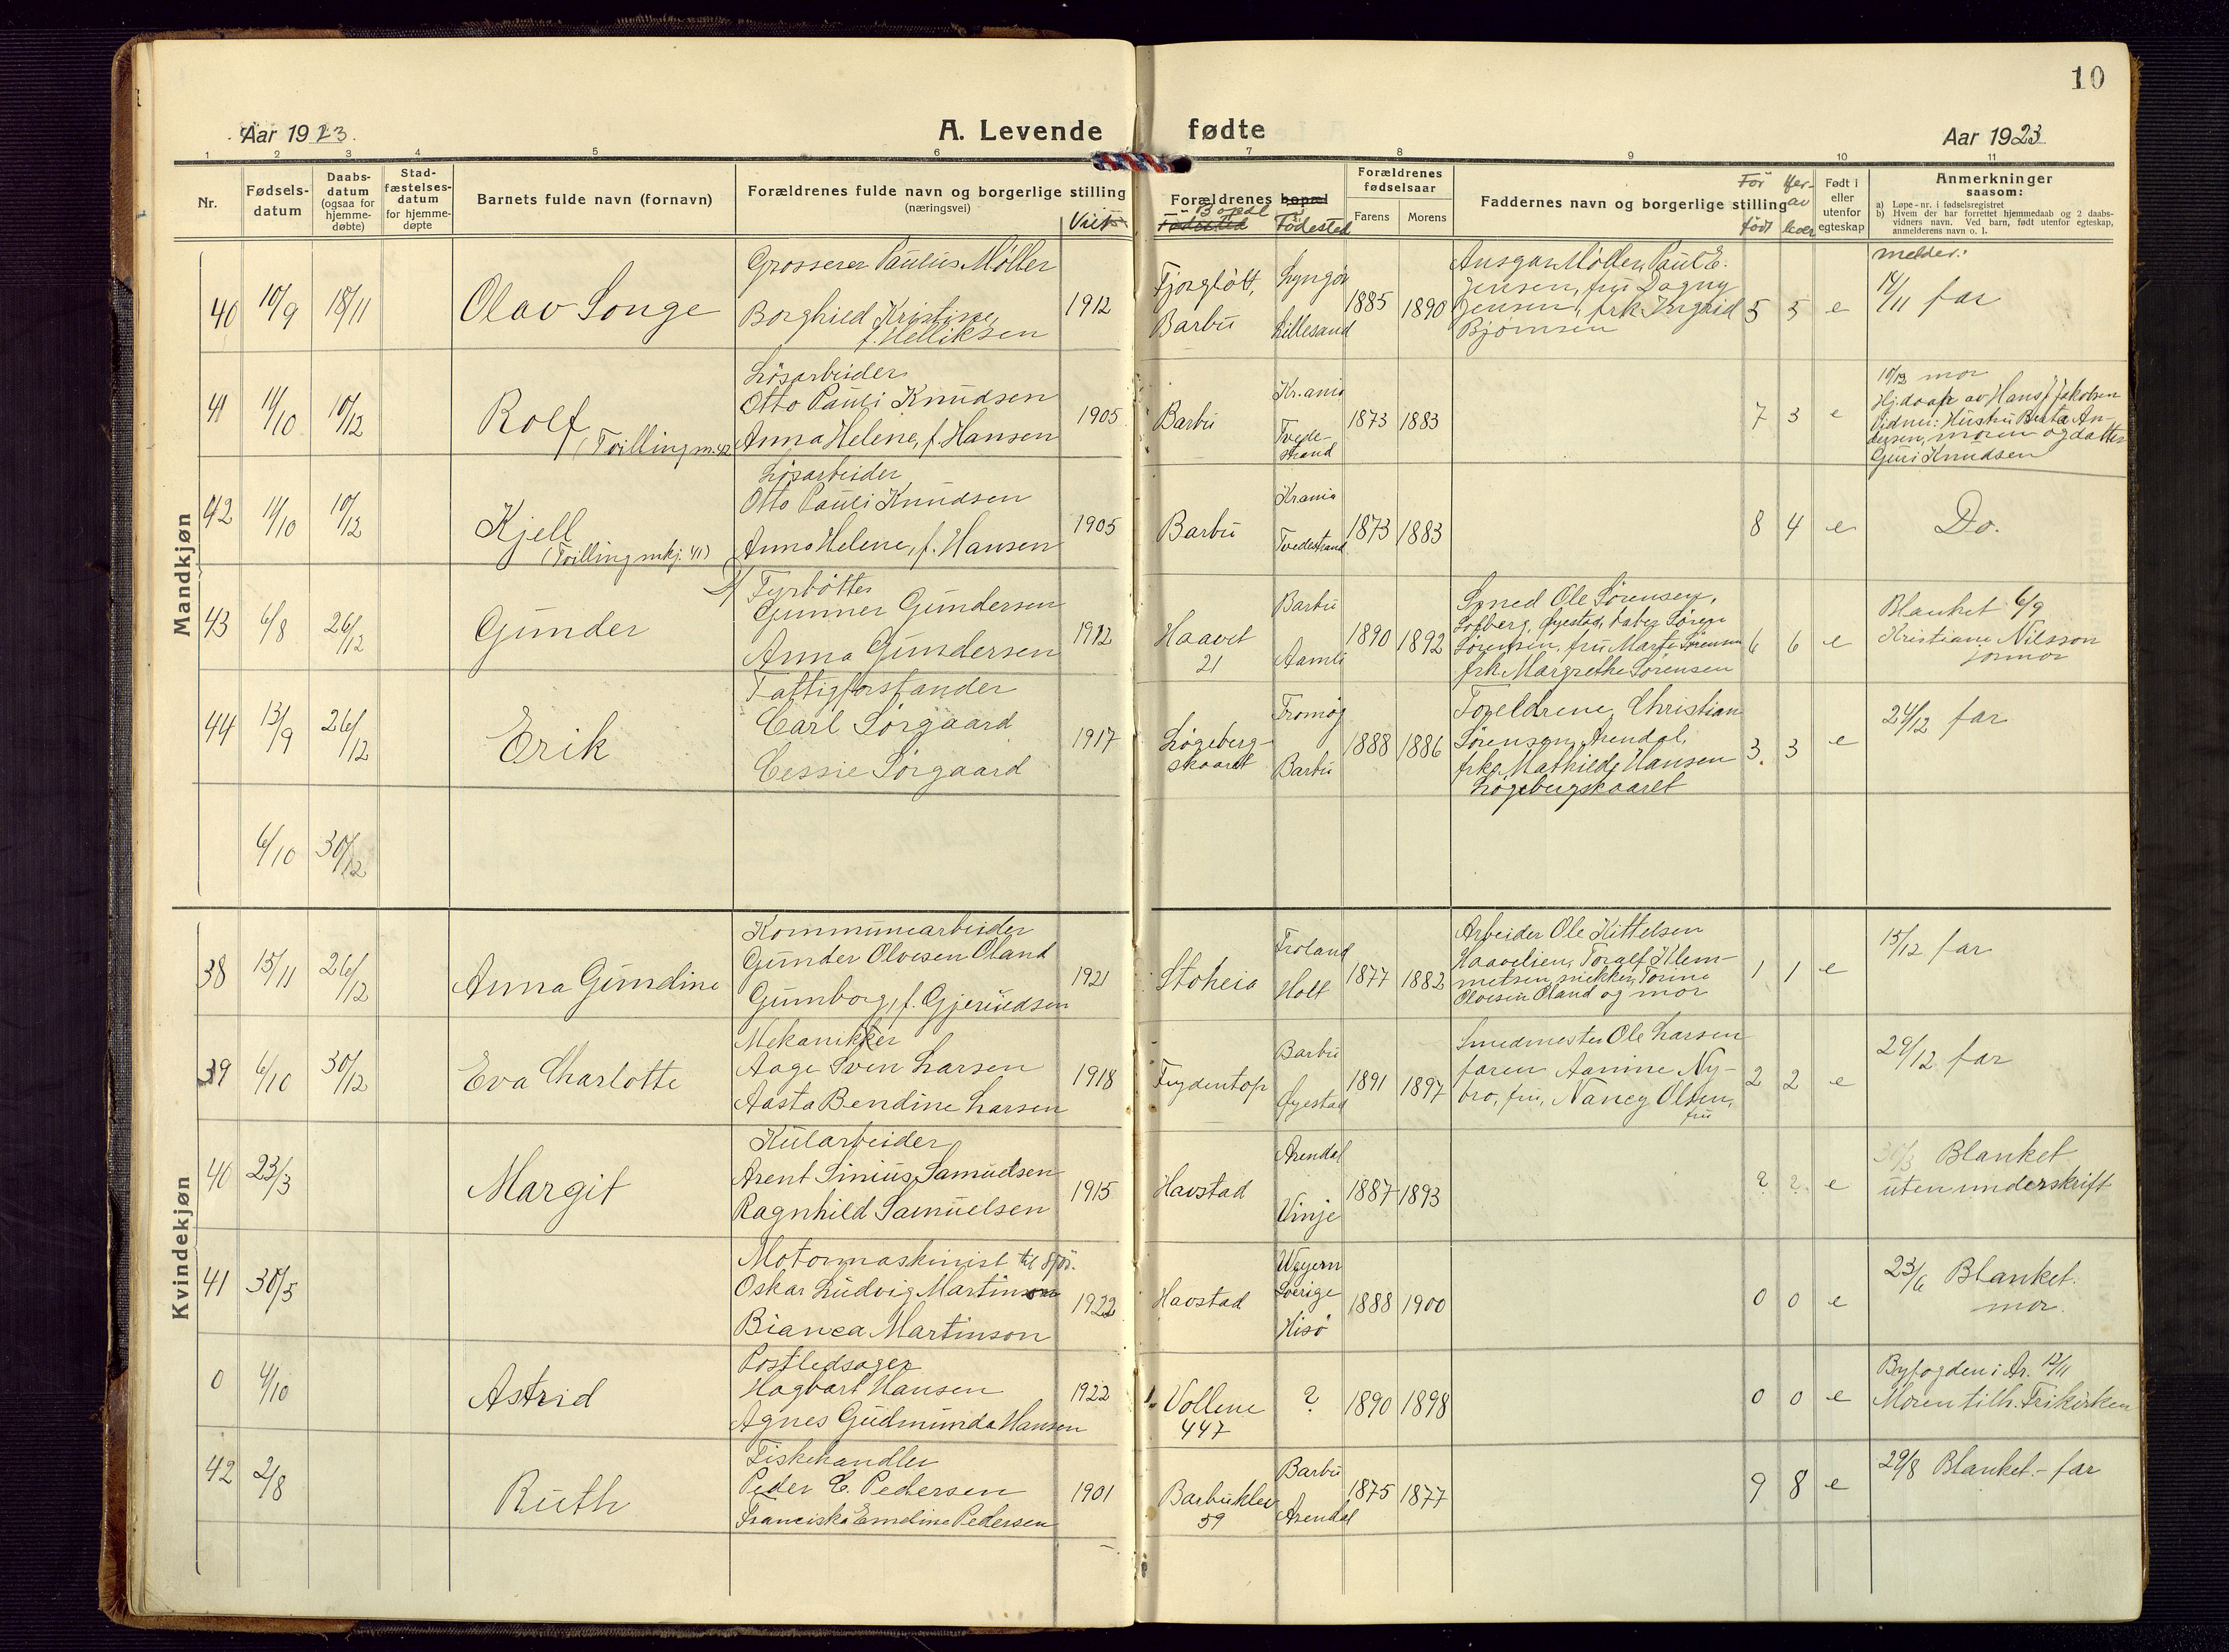 10
Aar 1923.
A. Levende fødte
Aar 1923
1 2 3 4 5 6 7 8 9 10 11
Nr.
Fødsels-
datum
Daabs-
datum
(ogsaa for
hjemme-
døbte)
Stad-
fæstelses-
datum
for hjemme-
døpte
Barnets fulde navn (fornavn)
Forældrenes fulde navn og borgerlige stilling
(næringsvei)
Viet
Forældrenes bopæl
Bopæl
Fødested
Fødested
Forældrenes
fødselsaar
Farens
Morens
Faddernes navn og borgerlige stilling
Før
født
Her-
av
lever
Født i
eller
utenfor
egteskap
Anmerkninger
saasom:
a) Løpe-nr. i fødselsregistret
b) Hvem der har forrettet hjemmedaab og 2 daabs-
vidners navn. Ved barn, født utenfor egteskap,
anmelderens navn o. l.
Mandkjøn
40 10/9 18/11
Olav Songe
Grosserer Paulus Møller
Borghild Kristine,
f. Helliksen
1912
Fjorgløtt,
Barbu
Lyngør
Lillesand
1885 1890
Ansgar Møller, Paul E.
Jensen, fru Dagny
Jensen, frk. Ingrid
Bjørnsen
5 5 e
melder:
14/11 far
41 11/10 10/12
Rolf
(Tvilling m. 42
Løsarbeider
Otto Pauli Knudsen
Anna Helene, f. Hansen
1905
Barbu
Kr.ania
Tvede-
strand
1873 1883
7 3 e
10/12 mor
Hj.daap av Hans J. Jakobsen
Vidner: Hustru Berta An-
dersen, moren og datter
Guri Knudsen
42 11/10 10/12
Kjell
(Tvilling mkj. 41)
Løsarbeider
Otto Pauli Knudsen
Anna Helene, f. Hansen
1905
Barbu
Krania
Tvedestrand
1873 1883
8 4 e
Do.
43 6/8 26/12
Gunder
Fyrbøtter
Gunner Gundersen
Anna Gundersen
1912
Haavet
21
Barbu
Aamli
1890 1892
Smed Ole Sørensen,
Øyestad,
Sørensen, fru Marte Sørensen
frk. Margrethe Sørensen
6 6 e
Blanket 6/9
Kristiane Nilsson
jormor
44 13/9 26/12
Erik
Fattigforstander
Carl Sørgaard
Cessie Sørgaard
1917
Løgeberg-
skaaret
Tromøy
Barbu
1888 1886
Foreldrene, Christian
Sørensen, Arendal,
frk. Mathilde Hansen
Løgebergskaaret
3. 3 e
24/12 far
6/10 30/12
Kvindekjøn
38 15/11 26/12
Anna Gundine
Kommunearbeider
Gunder Olvesen Oland
Gunborg, f. Gjeruldsen
1921
Stoheia
Froland
Holt
1877 1882
Arbeider Ole Kittelsen
Haavelien, Toralf Klem-
metsen, snekker, Torine
Olvesen Oland og mor
1 1 e
15/12 far
39 6/10 30/12
Eva Charlotte
Mekanikker
Aage Sven Larsen
Aasta Bendine Larsen
1918
Frydentop
Barbu
Øyestad
1891 1897
Smedmester Ole Larsen
faren Aamine Ny-
bro, fru, Nancy Olsen,
fru
2 2 e
29/12 far
40 23/3
Margit
Kularbeider
Arent Sinius Samuelsen
Ragnhild Samuelsen
1915
Havstad
Arendal
Vinje
1887 1893
? ? e
30/3 Blanket
uten underskrift
41 30/5
Motormaskinist til sjøs.
Oskar Ludvig Martinson
Bianca Martinson
1922
Havstad
Sverige
Hisø
1888 1900
0 0 e
23/6 Blanket.
mor.
0 4/10
Astrid
Postledsager
Hagbart Hansen
Agnes Gudmunda Hansen
1922
Vollene
447
?
1890 1898
0 0 e
Byfogden i Ar. 12/11
Moren tilh. Frikirken
42 2/8
Ruth
Fiskehandler
Peder E. Pedersen
Franciska Emeline Pedersen
1901
Barbuklev
59
Barbu
Arendal
1875 1877
9 8 e
29/8 Blanket.- far